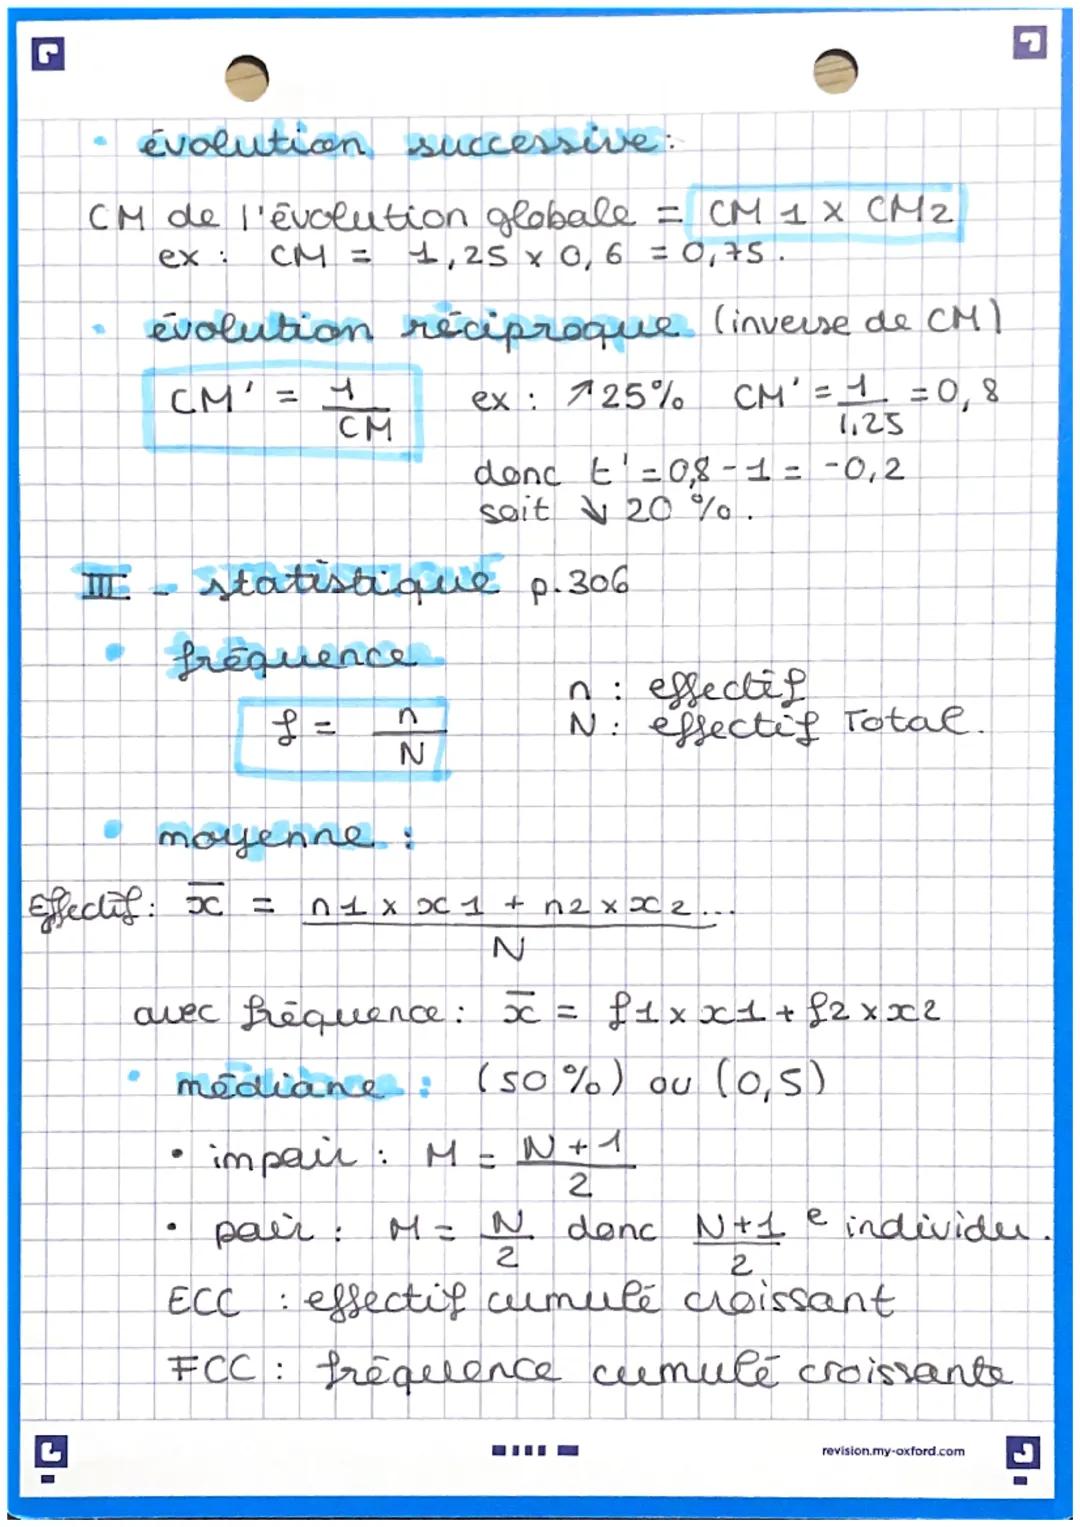 • évolution successive :
CM de l'évolution globale = CM 1 x CM2
ex : CM = 1,25 x 0,6 = 0,75.
• évolution réciproque (inverse de CM)
CM' = 1/CM ex : ↗25% CM' = 1/1,25 = 0,8
donc t' = 0,8 - 1 = -0,2
soit ↘ 20 %.
III - statistique p.306
• fréquence
n : effectif
f = n/N N : effectif Total.
• moyenne :
Effectif : x̅ = n1 x x1 + n2 x x2.../N
avec fréquence : x̅ = f1 x x1 + f2 x x2
• médiane : (50 %) ou (0,5)
• impair : M = N + 1/2
• pair : M = N/2 donc N+1/2 e individu.
ECC : effectif cumulé croissant
FCC : fréquence cumulé croissante
revision.my-oxford.com